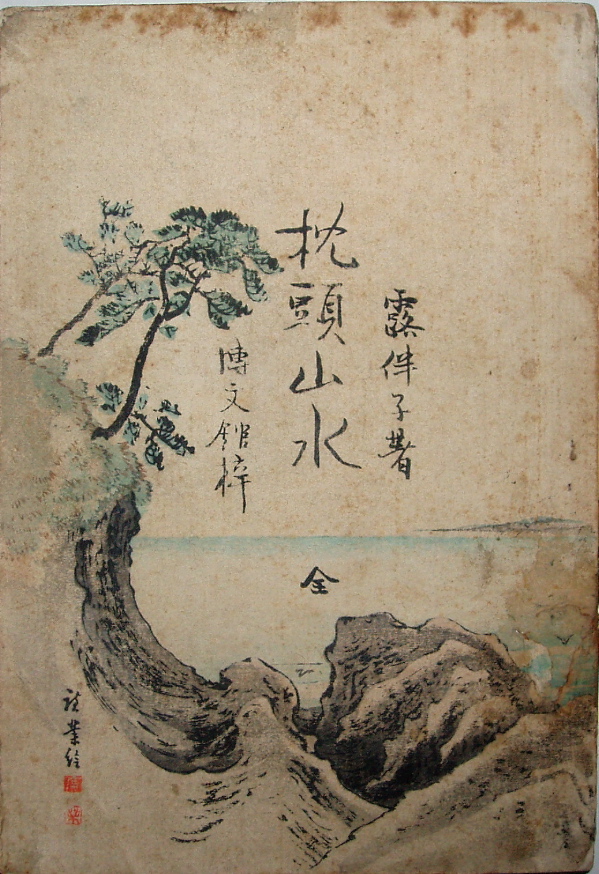 露伴子著
枕頭山水
博文館梓
全